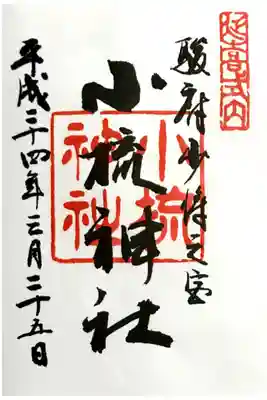 延喜式内
駿府少将之宮
小梳神社
小梳神社
平成二十四年三月二十五日